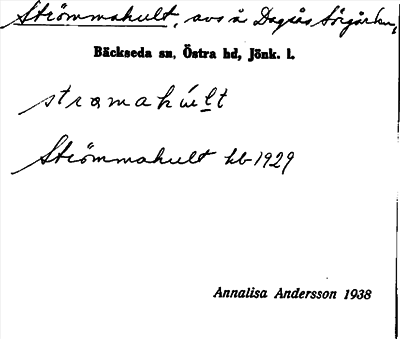 Strömmahult, avs å Dagsås Sörgården,
Bäckseda sn, Östra hd, Jönk. l.
strømahu̇lt
Strömmahult hb 1929
Annalisa Andersson 1938